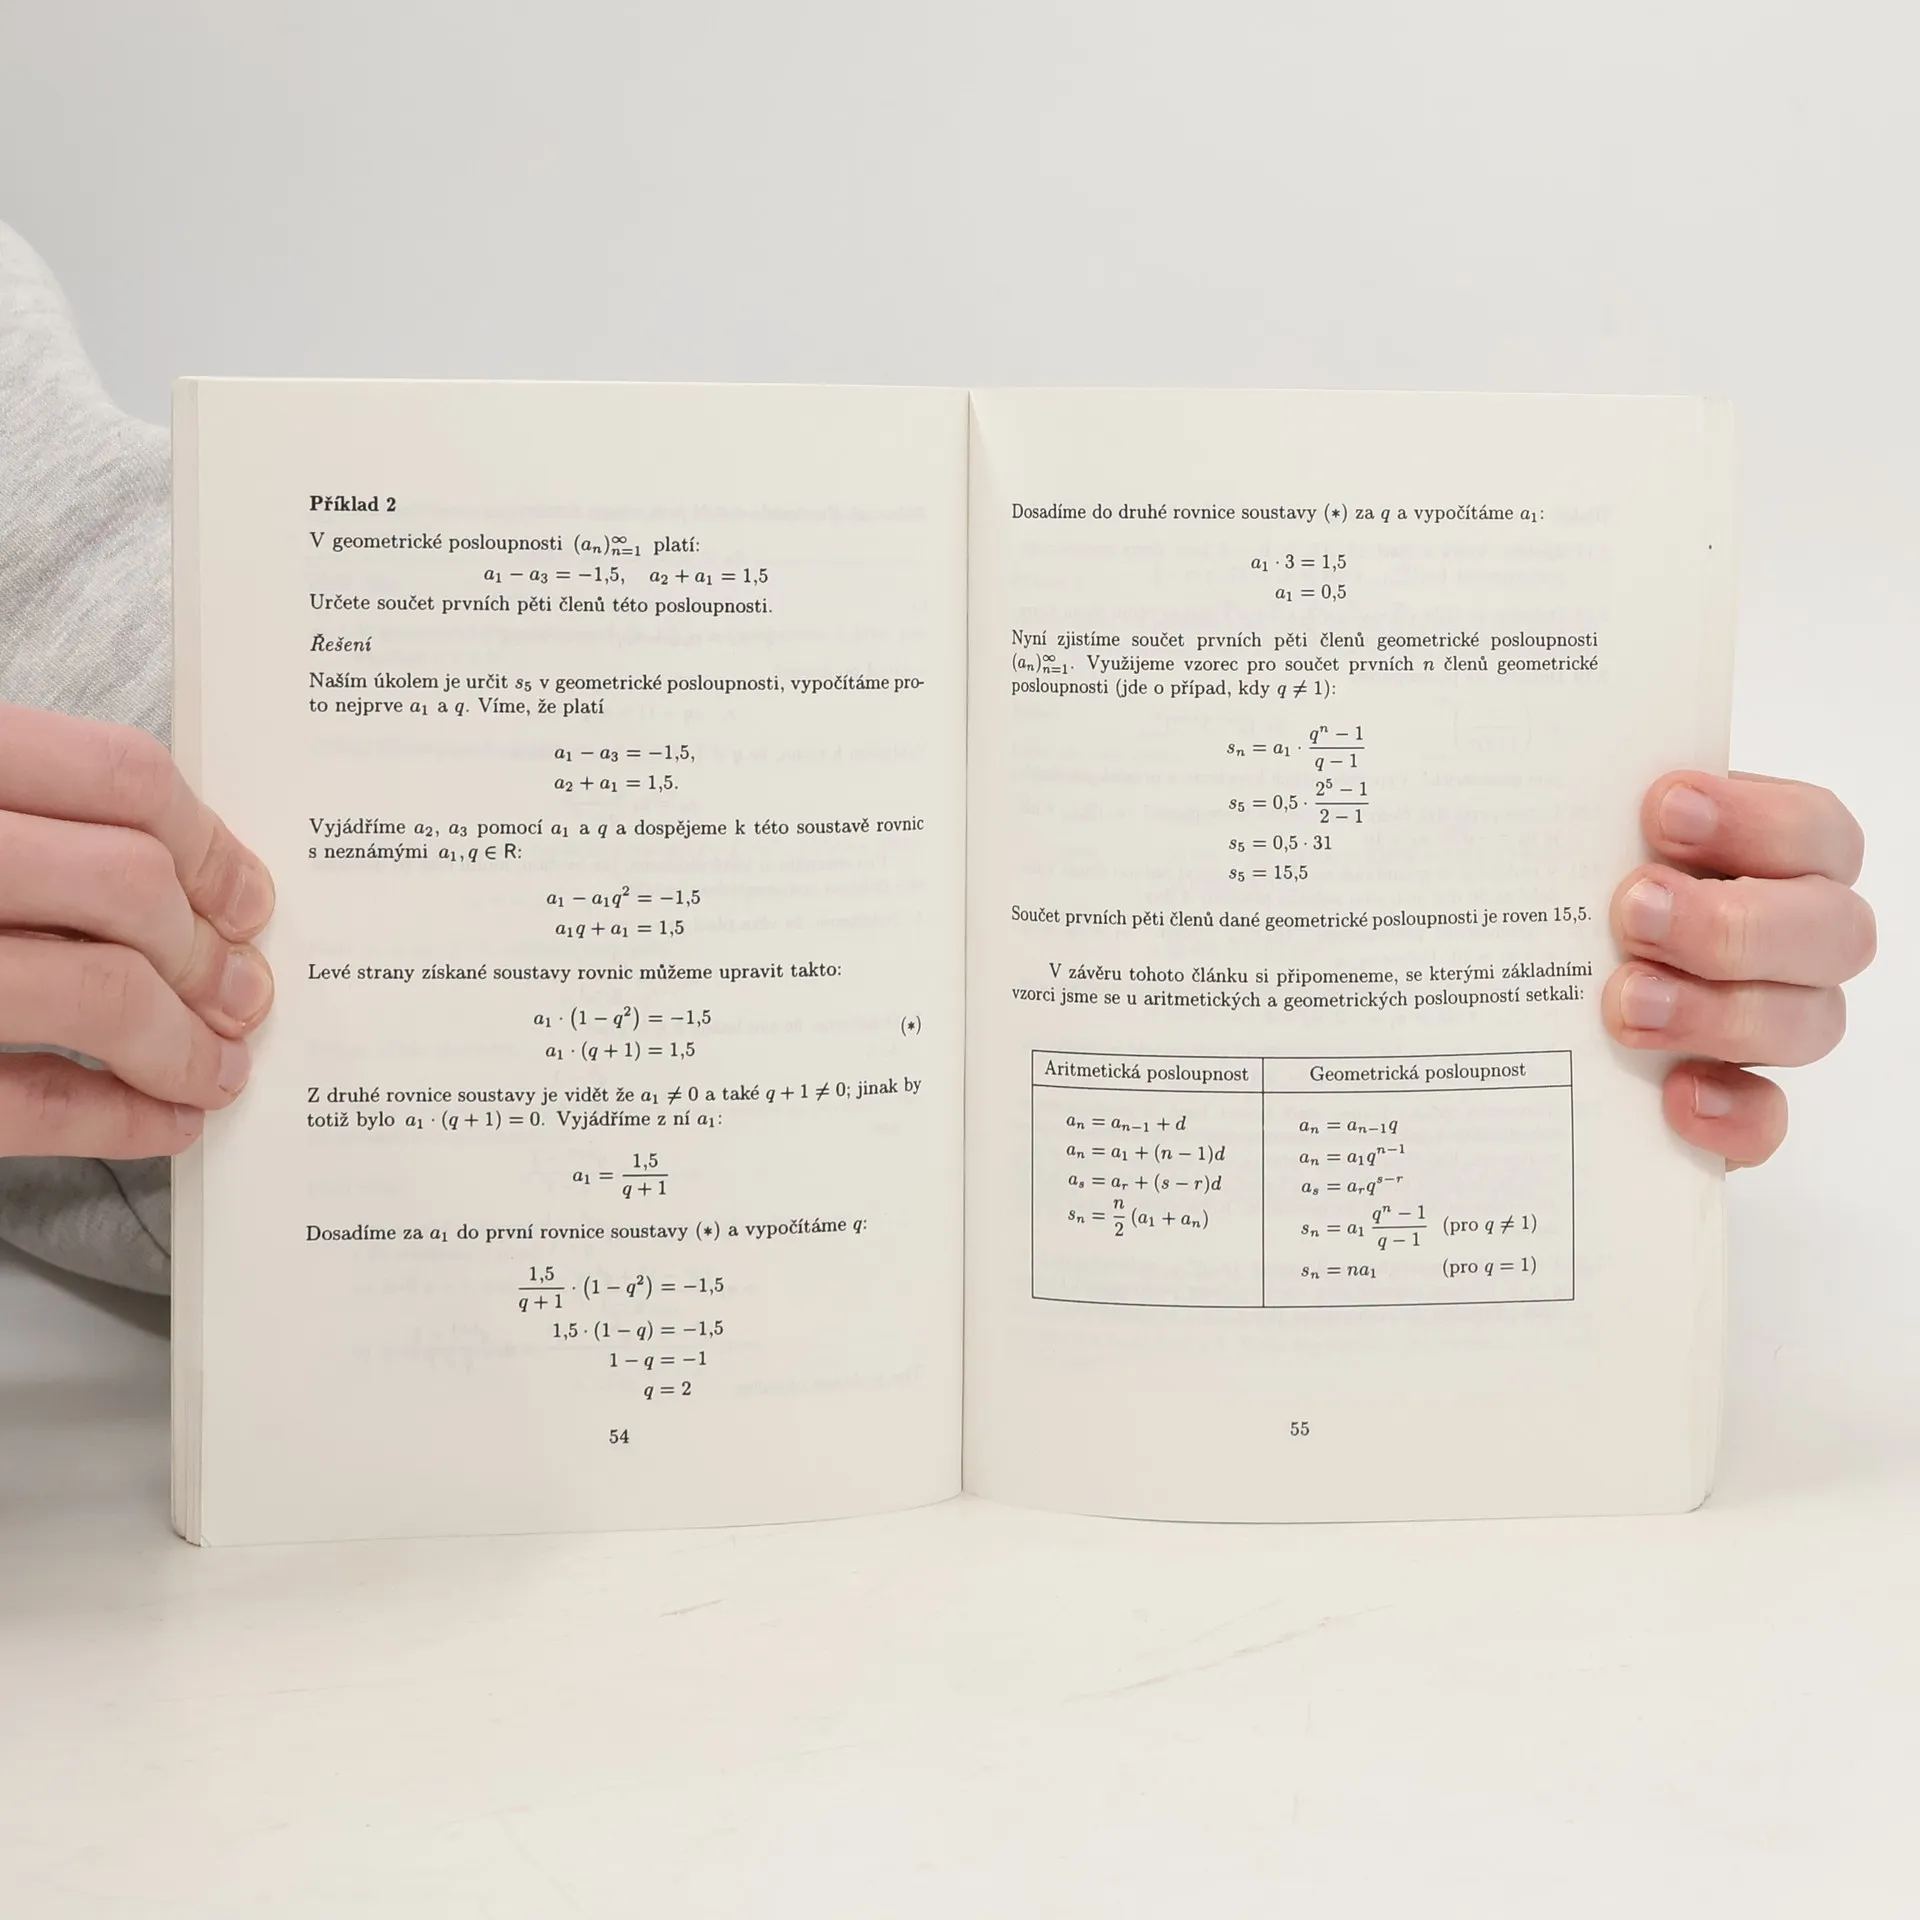 Příklad 2
V geometrické posloupnosti (aₙ)ₙ₌₁^∞ platí:
a₁ − a₃ = −1,5, a₂ + a₁ = 1,5
Určete součet prvních pěti členů této posloupnosti.
Řešení
Naším úkolem je určit s₅ v geometrické posloupnosti, vypočítáme pro-
to nejprve a₁ a q. Víme, že platí
a₁ − a₃ = −1,5,
a₂ + a₁ = 1,5.
Vyjádříme a₂, a₃ pomocí a₁ a q a dospějeme k této soustavě rovnic
s neznámými a₁, q ∈ R:
a₁ − a₁q² = −1,5
a₁q + a₁ = 1,5
Levé strany získané soustavy rovnic můžeme upravit takto:
a₁ · (1 − q²) = −1,5
(∗)
a₁ · (q + 1) = 1,5
Z druhé rovnice soustavy je vidět že a₁ ≠ 0 a také q + 1 ≠ 0; jinak by
totiž bylo a₁ · (q + 1) = 0. Vyjádříme z ní a₁:
a₁ = 1,5 / (q + 1)
Dosadíme za a₁ do první rovnice soustavy (∗) a vypočítáme q:
1,5 / (q + 1) · (1 − q²) = −1,5
1,5 · (1 − q) = −1,5
1 − q = −1
q = 2
54
Dosadíme do druhé rovnice soustavy (∗) za q a vypočítáme a₁:
a₁ · 3 = 1,5
a₁ = 0,5
Nyní zjistíme součet prvních pěti členů geometrické posloupnosti
(aₙ)ₙ₌₁^∞. Využijeme vzorec pro součet prvních n členů geometrické
posloupnosti (jde o případ, kdy q ≠ 1):
sₙ = a₁ · (qⁿ − 1) / (q − 1)
s₅ = 0,5 · (2⁵ − 1) / (2 − 1)
s₅ = 0,5 · 31
s₅ = 15,5
Součet prvních pěti členů dané geometrické posloupnosti je roven 15,5.
V závěru tohoto článku si připomeneme, se kterými základními
vzorci jsme se u aritmetických a geometrických posloupností setkali:
Aritmetická posloupnost
aₙ = aₙ₋₁ + d
aₙ = a₁ + (n − 1)d
aₛ = aᵣ + (s − r)d
sₙ = n/2 (a₁ + aₙ)
Geometrická posloupnost
aₙ = aₙ₋₁q
aₙ = a₁qⁿ⁻¹
aₛ = aᵣqˢ⁻ʳ
sₙ = a₁ (qⁿ − 1) / (q − 1) (pro q ≠ 1)
sₙ = na₁ (pro q = 1)
55